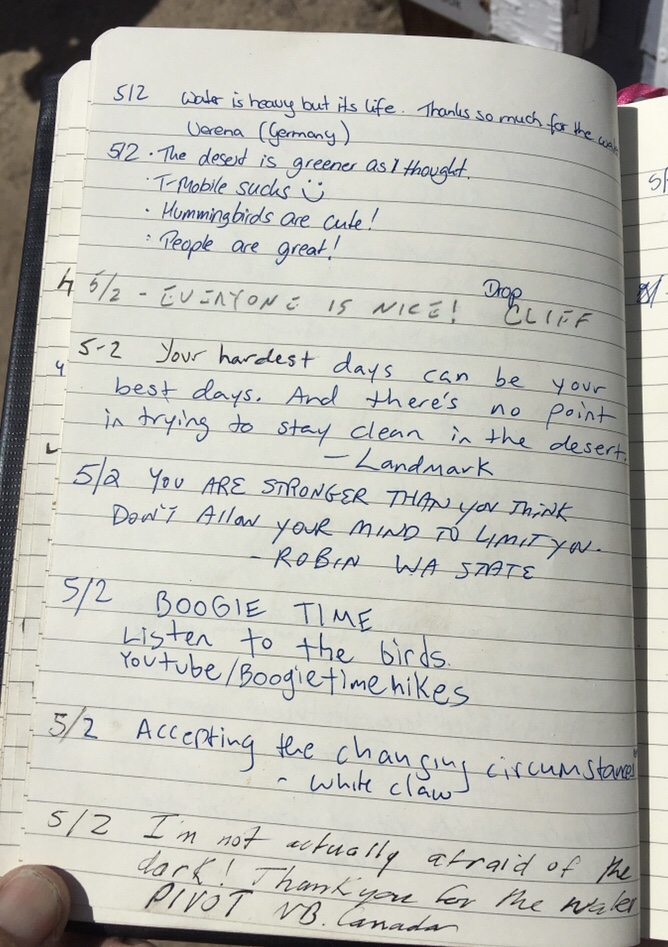 5/2 Water is heavy but its life. Thanks so much for the wat
Verena (Germany)
5/2 · The desert is greener as I thought.
· T-Mobile sucks :)
· Hummingbirds are cute!
· People are great!
5/2 - EVERYONE IS NICE! Drop CLIFF
5-2 Your hardest days can be your
best days. And there's no point
in trying to stay clean in the desert.
- Landmark
5/2 YOU ARE STRONGER THAN YOU THINK
DON'T ALLOW YOUR MIND TO LIMIT YOU.
- ROBIN WA STATE
5/2 BOOGIE TIME
Listen to the birds.
Youtube/Boogietimehikes
5/2 Accepting the changing circumstances
- White claw
5/2 I'm not actually afraid of the
dark! Thank you for the water
PIVOT NB. Canada